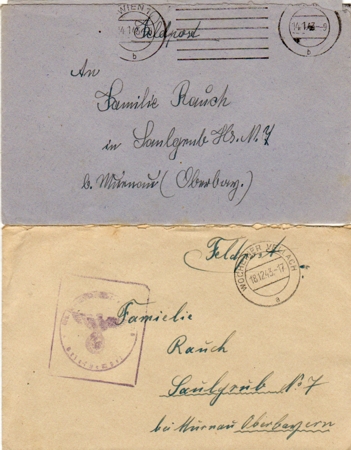 WIEN
14.1.43
Feldpost
14.1.43-9
b
b
An
Familie Rauch
in Saulgrub Hs. N. 7
b. Murnau (Oberbay.)
Feldpost
WOCHEINER VELLACH
18.12.43.-17
a
Familie
Rauch
Saulgrub No 7
bei Murnau Oberbayern